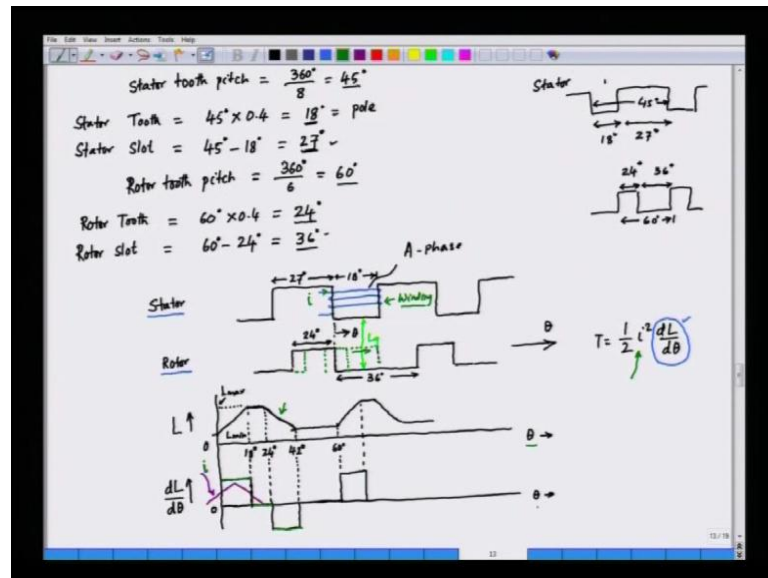 File Edit View Insert Actions Tools Help
Stator tooth pitch = 360°/8 = 45°
Stator Tooth = 45° × 0.4 = 18° = pole
Stator Slot = 45° - 18° = 27°
Rotor tooth pitch = 360°/6 = 60°
Rotor Tooth = 60° × 0.4 = 24°
Rotor Slot = 60° - 24° = 36°
Stator
45°
18° 27°
24° 36°
60°
A-phase
27° 18°
Stator
i
Winding
θ
24°
θ
Rotor
36°
T = 1/2 i² dL/dθ
Lmax
L
Lmin
0
18° 24° 42° 60°
θ
i
dL/dθ
0
θ
13
13/19